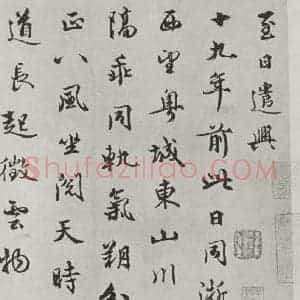 至日遣興
十九年前此日同浙
西望粤城東山川
隔乖同軌氣朔
正八風坐閱天時
道長起徵雲物
Shufaziliao.com